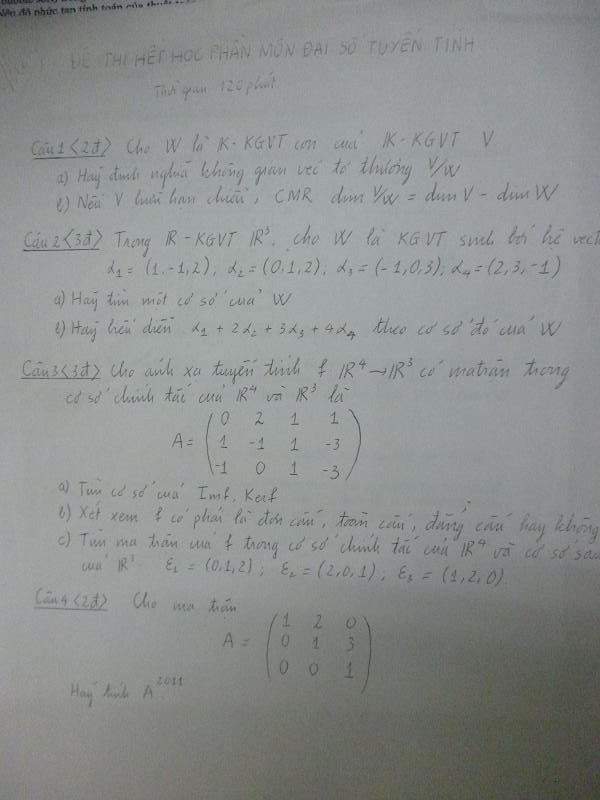 nêu độ phức tạp tính toán của thuật
ĐỀ THI HẾT HỌC PHẦN MÔN ĐẠI SỐ TUYẾN TÍNH
Thời gian 120 phút
Câu 1 <2đ> Cho W là IK - KGVT con của IK - KGVT V
a) Hãy định nghĩa không gian véc tơ thương V/W
b) Nếu V hữu hạn chiều, CMR dim V/W = dim V - dim W
Câu 2 <3đ> Trong IR - KGVT IR³, cho W là KGVT sinh bởi hệ vectơ
α₁ = (1,-1,2), α₂ = (0,1,2); α₃ = (-1,0,3); α₄ = (2,3,-1)
a) Hãy tìm một cơ sở của W
b) Hãy biểu diễn α₁ + 2α₂ + 3α₃ + 4α₄ theo cơ sở đó của W
Câu 3 <3đ> Cho ánh xạ tuyến tính f IR⁴ → IR³ có ma trận trong
cơ sở chính tắc của IR⁴ và IR³ là
0 2 1 1
A = 1 -1 1 -3
-1 0 1 -3
a) Tìm cơ sở của Imf, Kerf
b) Xét xem f có phải là đơn cấu, toàn cấu, đẳng cấu hay không
c) Tìm ma trận của f trong cơ sở chính tắc của IR⁴ và cơ sở sau
của IR³ ε₁ = (0,1,2); ε₂ = (2,0,1); ε₃ = (1,2,0).
Câu 4 <2đ> Cho ma trận
1 2 0
A = 0 1 3
0 0 1
Hãy tính A²⁰¹¹